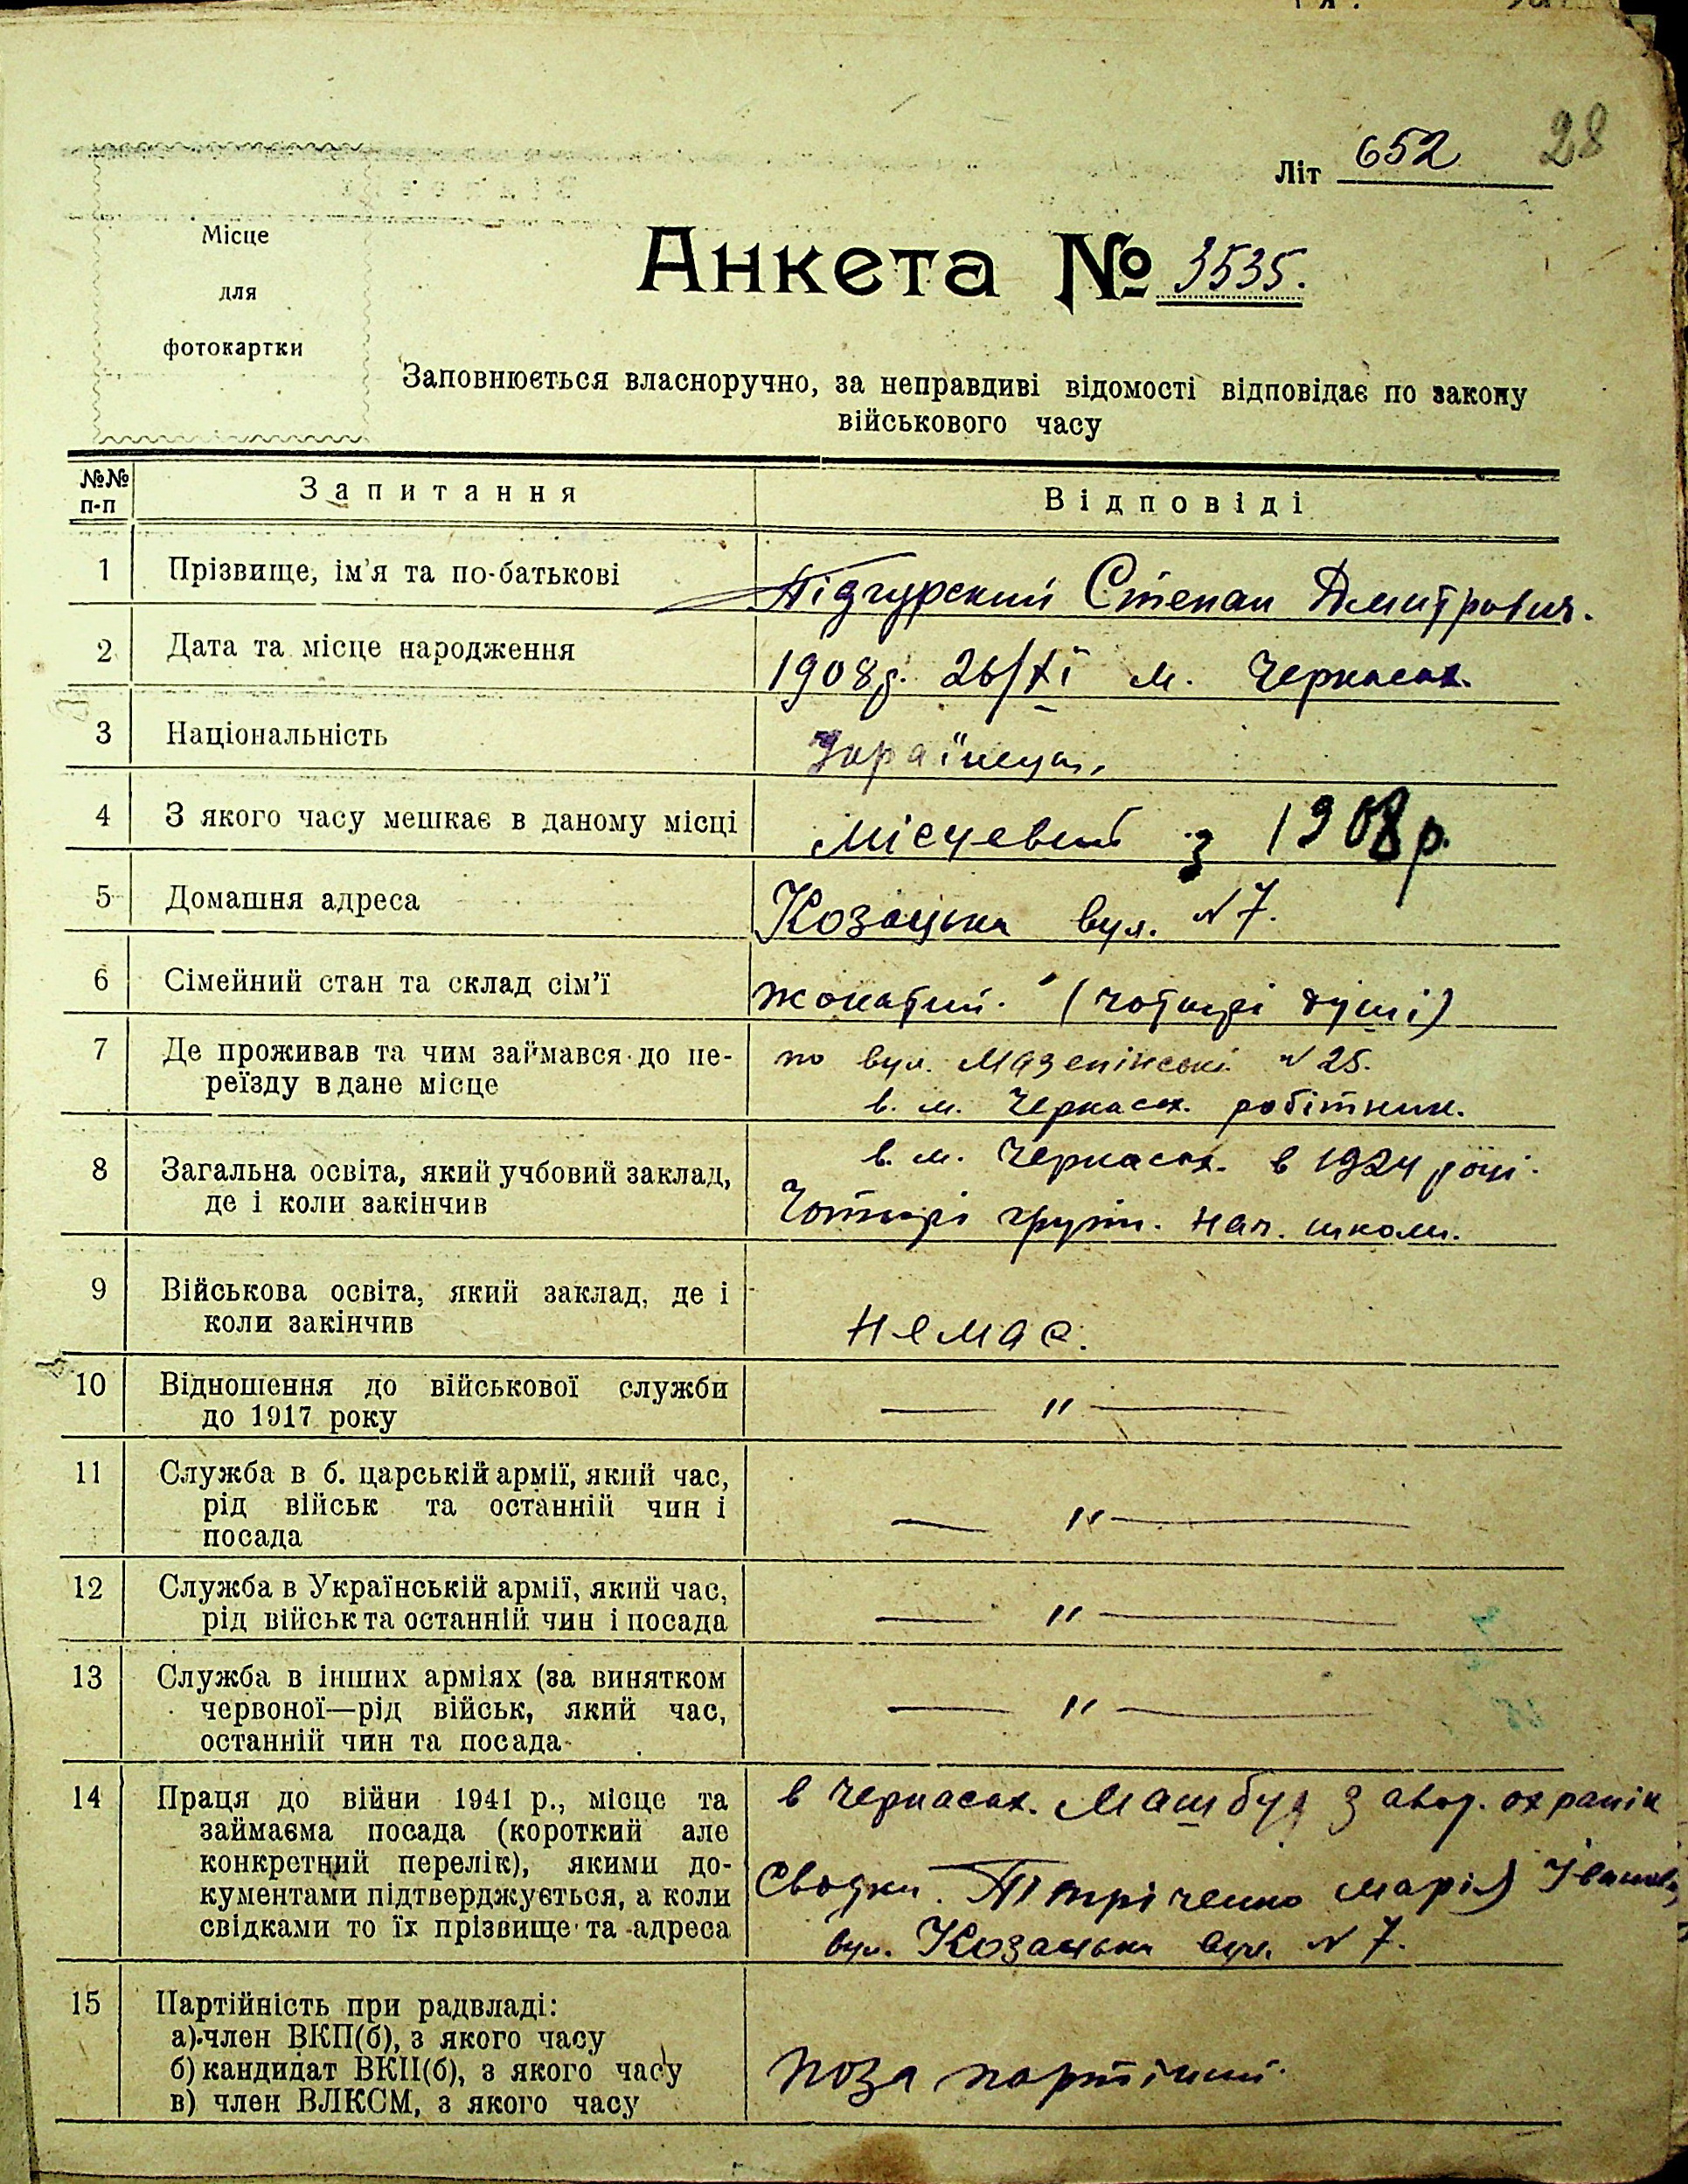 28
Літ 652
Місце
для
фотокартки
Анкета № 3535.
Заповнюється власноручно, за неправдиві відомості відповідає по закону
військового часу
№№ п-п
Запитання
Відповіді
1
Прізвище, ім'я та по-батькові
Підгурский Степан Дмитрович.
2
Дата та місце народження
1908р. 26/XI м. Черкасах.
3
Національність
Українець.
4
З якого часу мешкає в даному місці
Місцевий з 1908 р.
5
Домашня адреса
Козацька вул. N 7.
6
Сімейний стан та склад сім'ї
жонатий. (чотирі душі)
7
Де проживав та чим займався до пе-
реїзду в дане місце
по вул. Мазепінські N 25.
в. м. Черкасах. робітник.
8
Загальна освіта, який учбовий заклад,
де і коли закінчив
в. м. Черкасах. в 1924 році.
Чотирі груп. нач. школи.
9
Військова освіта, який заклад, де і
коли закінчив
Немає.
10
Відношення до військової служби
до 1917 року
— " —
11
Служба в б. царській армії, який час,
рід військ та останній чин і
посада
— " —
12
Служба в Українській армії, який час,
рід військ та останній чин і посада
— " —
13
Служба в інших арміях (за винятком
червоної—рід військ, який час,
останній чин та посада
— " —
14
Праця до війни 1941 р., місце та
займаєма посада (короткий але
конкретний перелік), якими до-
кументами підтверджується, а коли
свідками то їх прізвище та адреса
в Черкасах. Машбуд завод. охранік
Марія
вул. Козацька вул. N 7.
15
Партійність при радвладі:
а) член ВКП(б), з якого часу
б) кандидат ВКП(б), з якого часу
в) член ВЛКСМ, з якого часу
поза партійний.